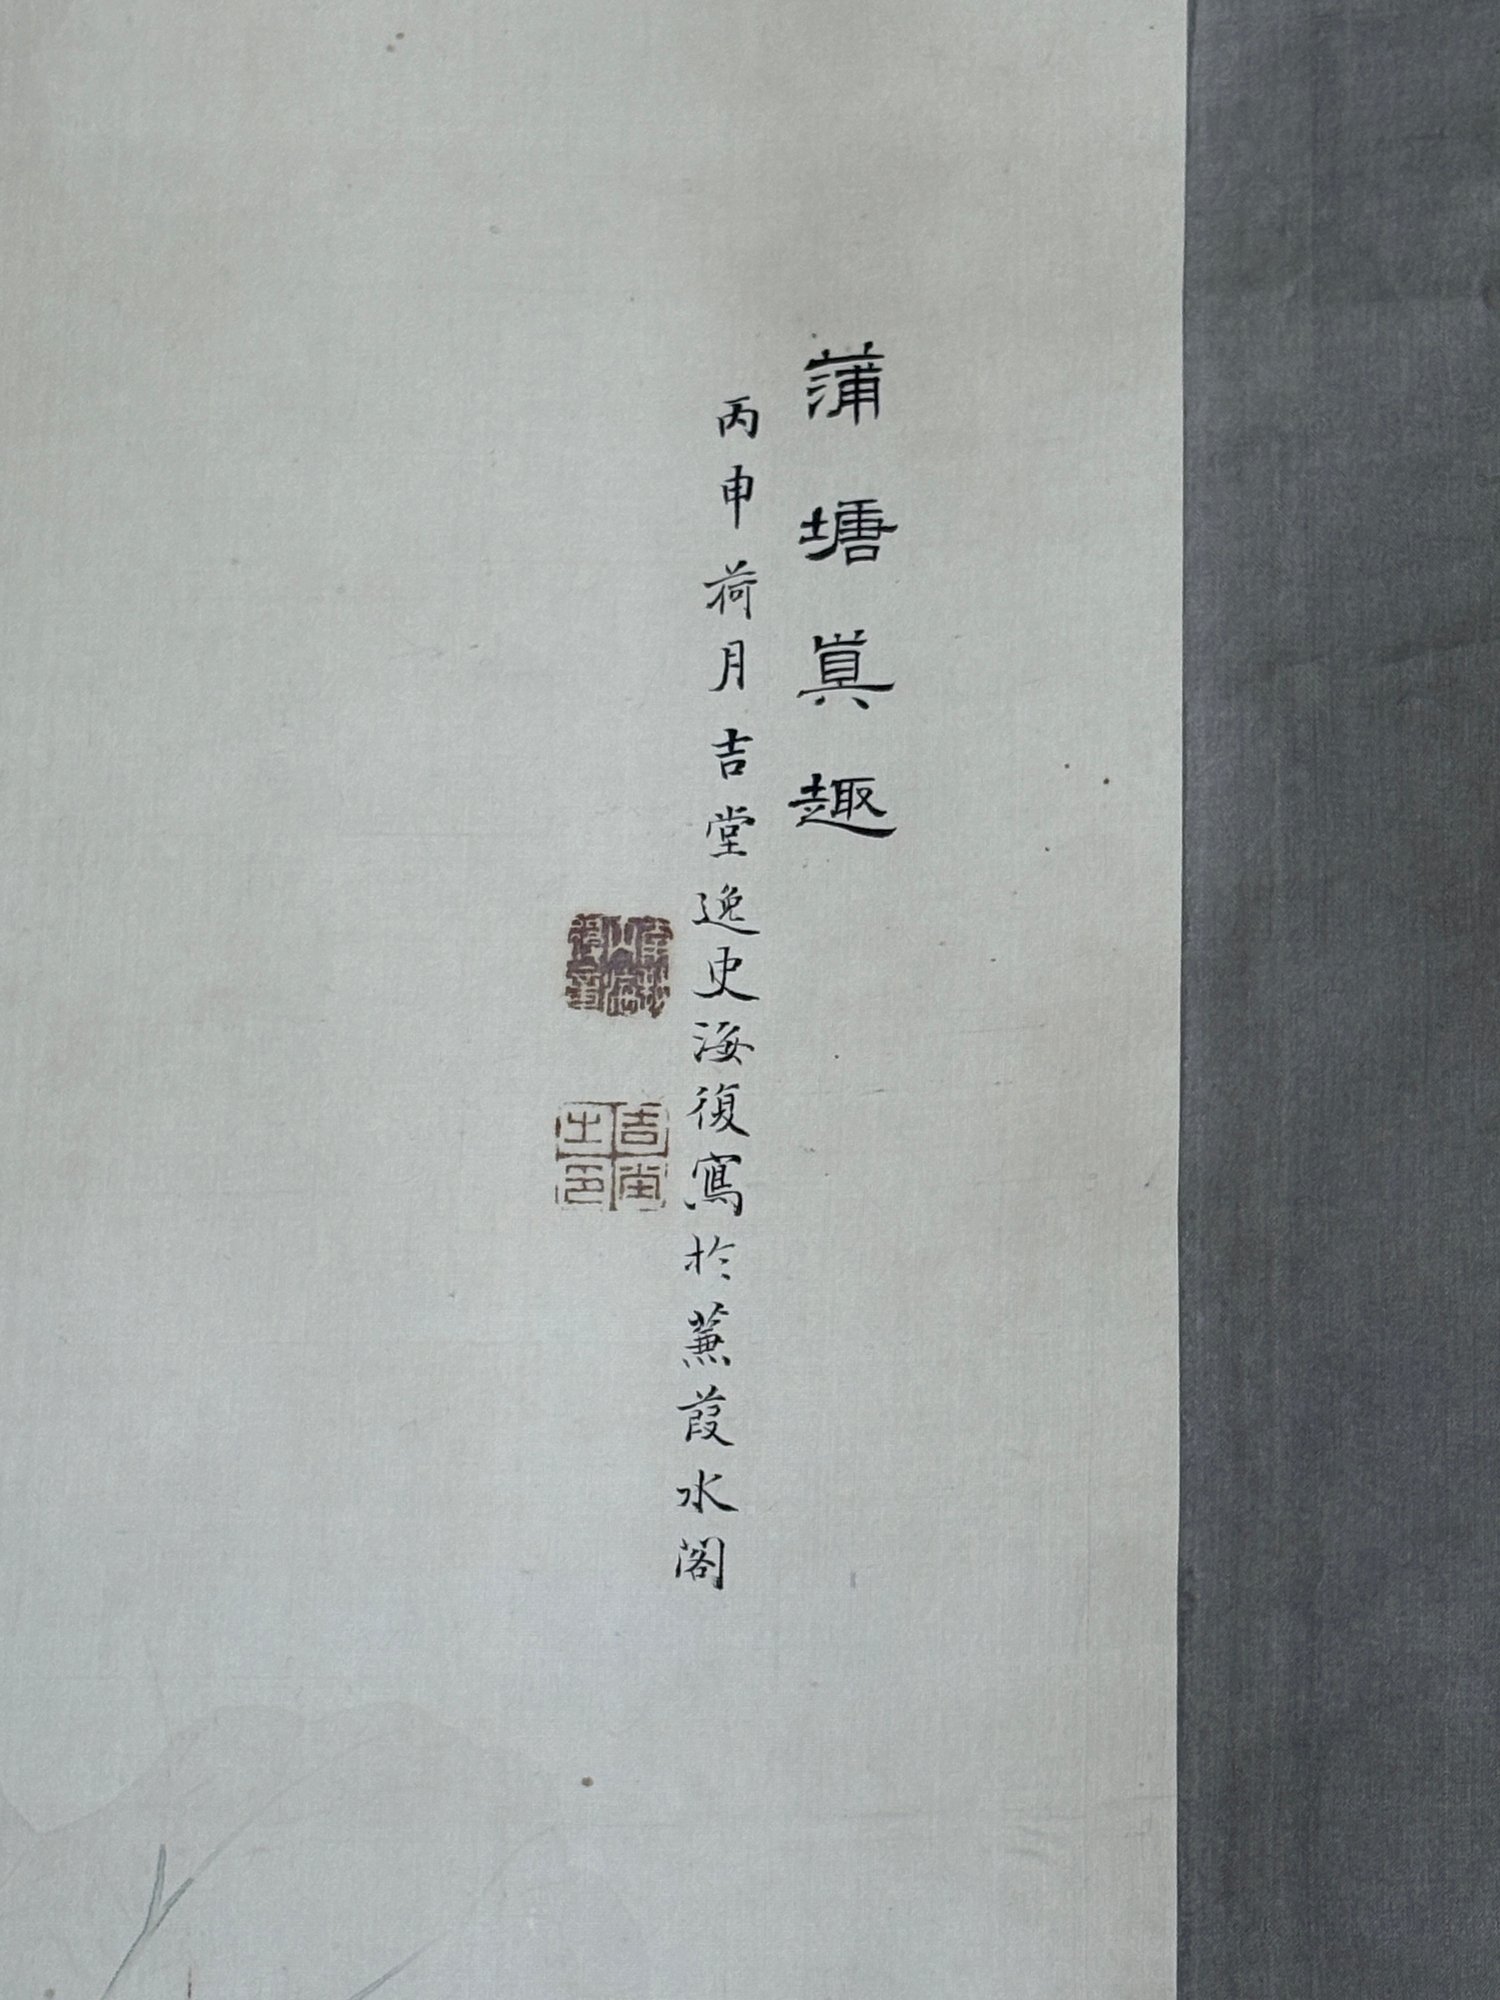 蒲塘真趣
丙申荷月吉堂逸史海復寫於蒹葭水閣
吉堂
之印